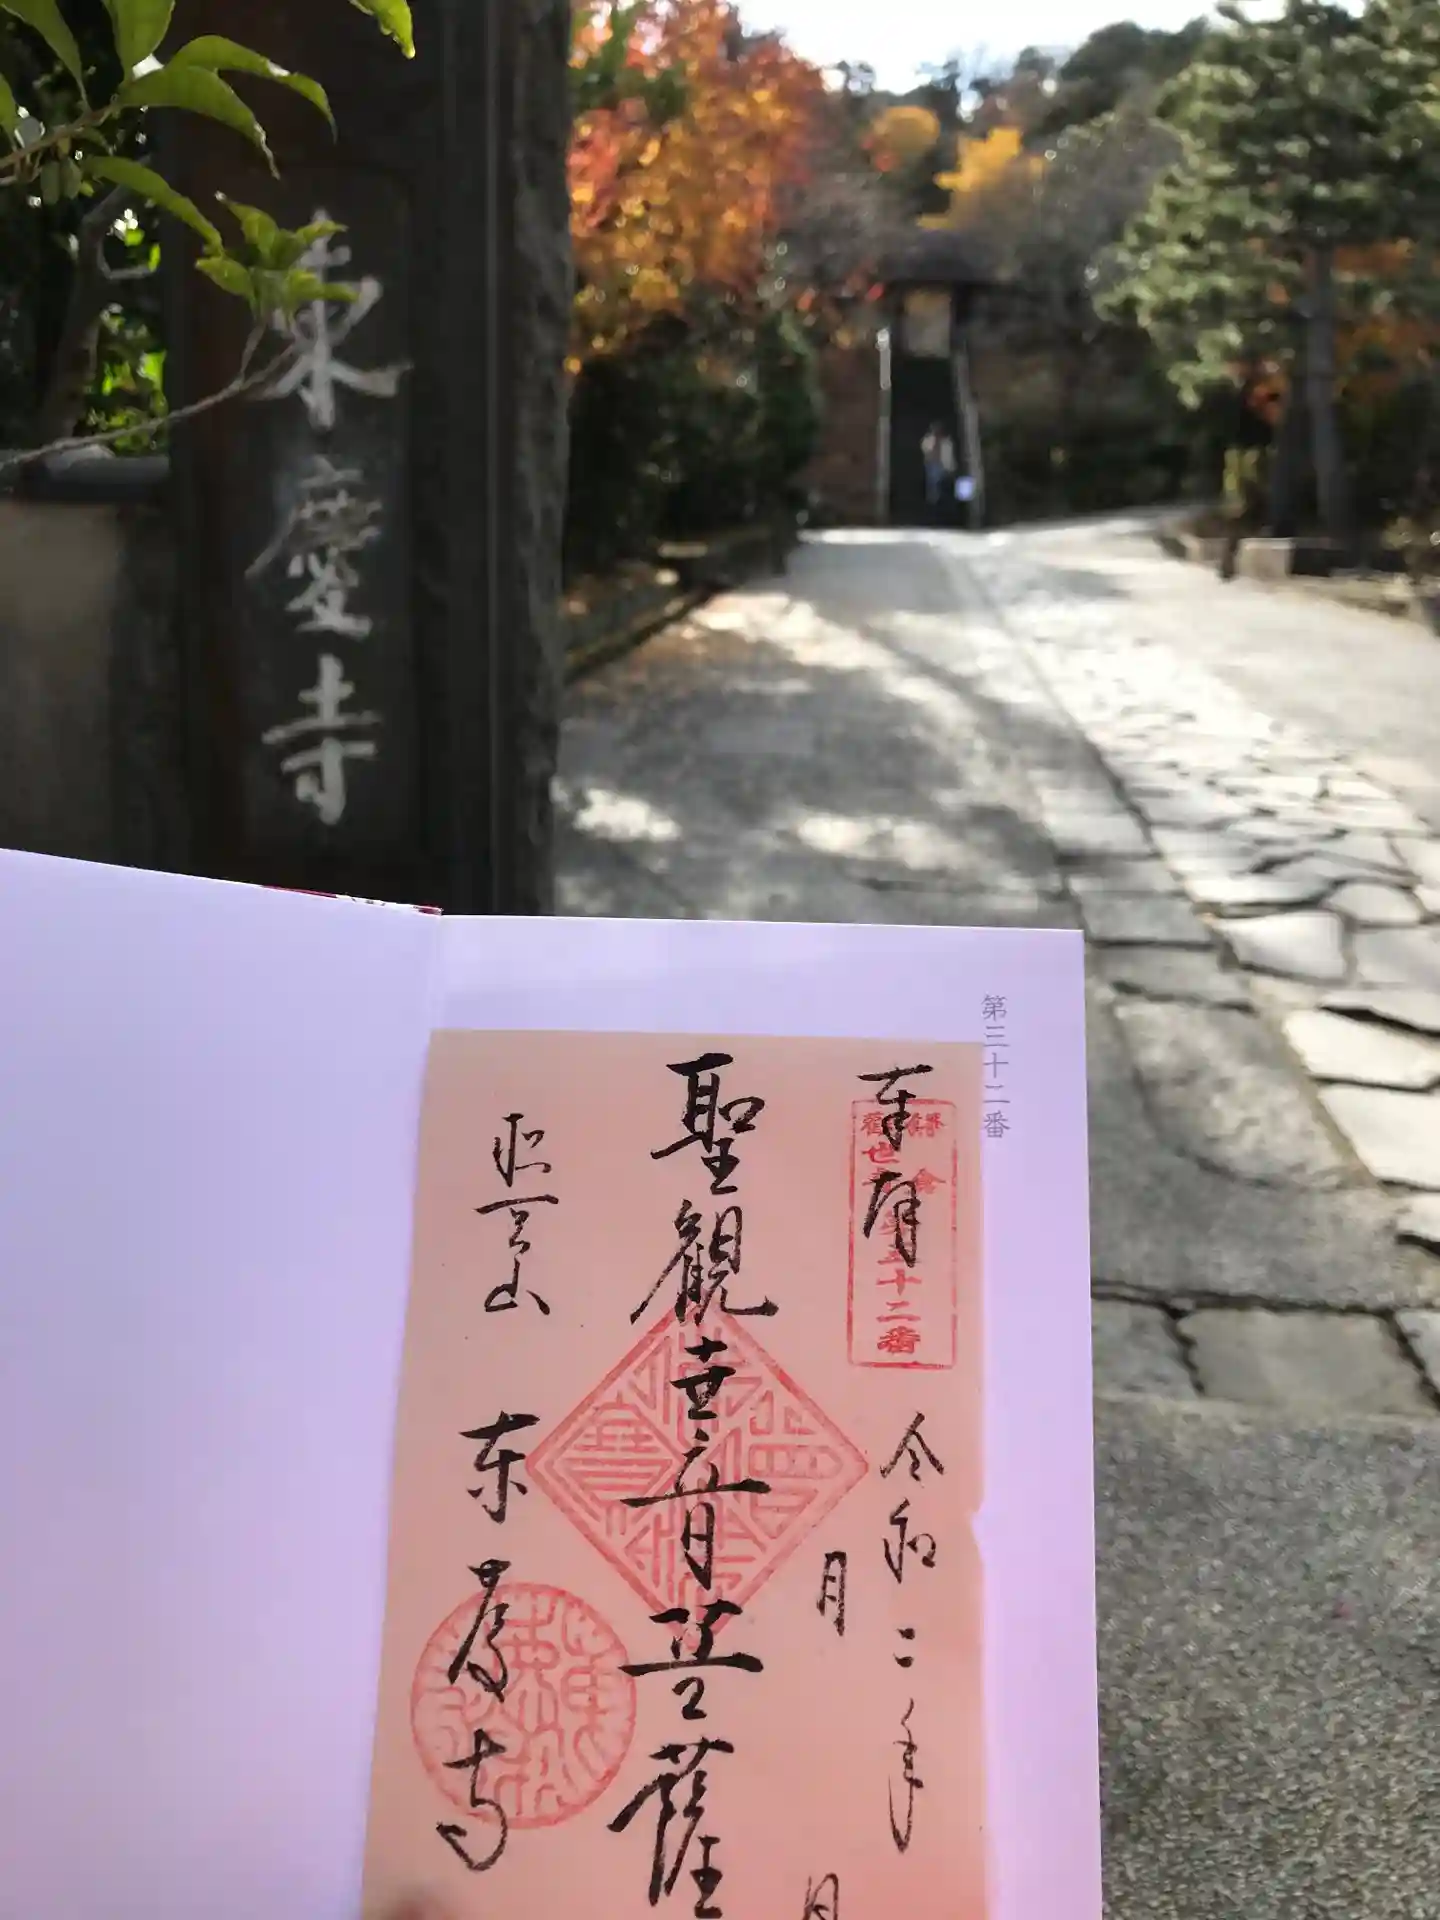 東慶寺
第三十二番
奉拝
鎌倉
観世音
第三十二番
令和二年
月
日
聖観世音菩薩
松岡山
東慶寺